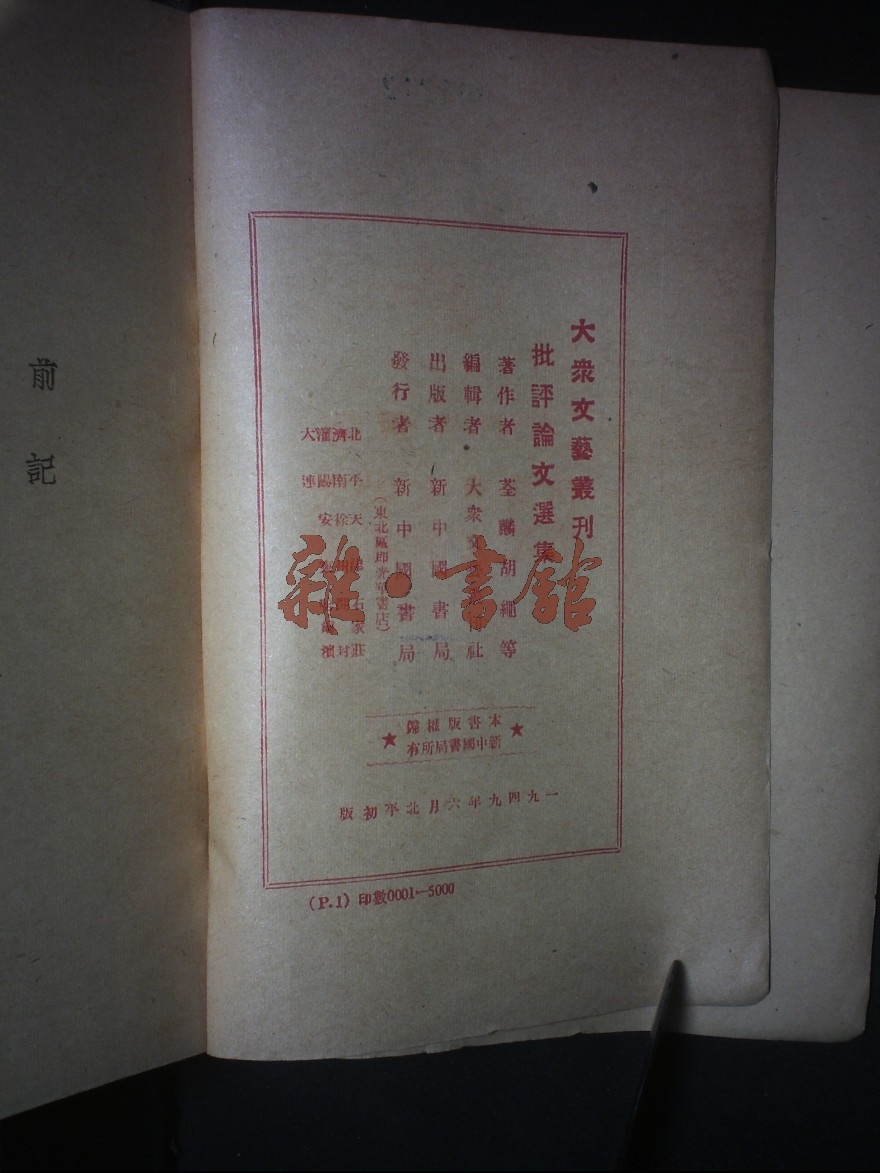 大衆文藝叢刊
批評論文選集
著作者 荃麟胡繩等
編輯者 大衆文 社
出版者 新中國書局
發行者 新中國書局
(東北區即光華書店)
北平 天津 石家莊
濟南 徐州 開封
瀋陽 安 濱
大連
★ 本書版權歸
新中國書局所有 ★
一九四九年六月北平初版
(P.1) 印數0001—5000
前記
雜·書館